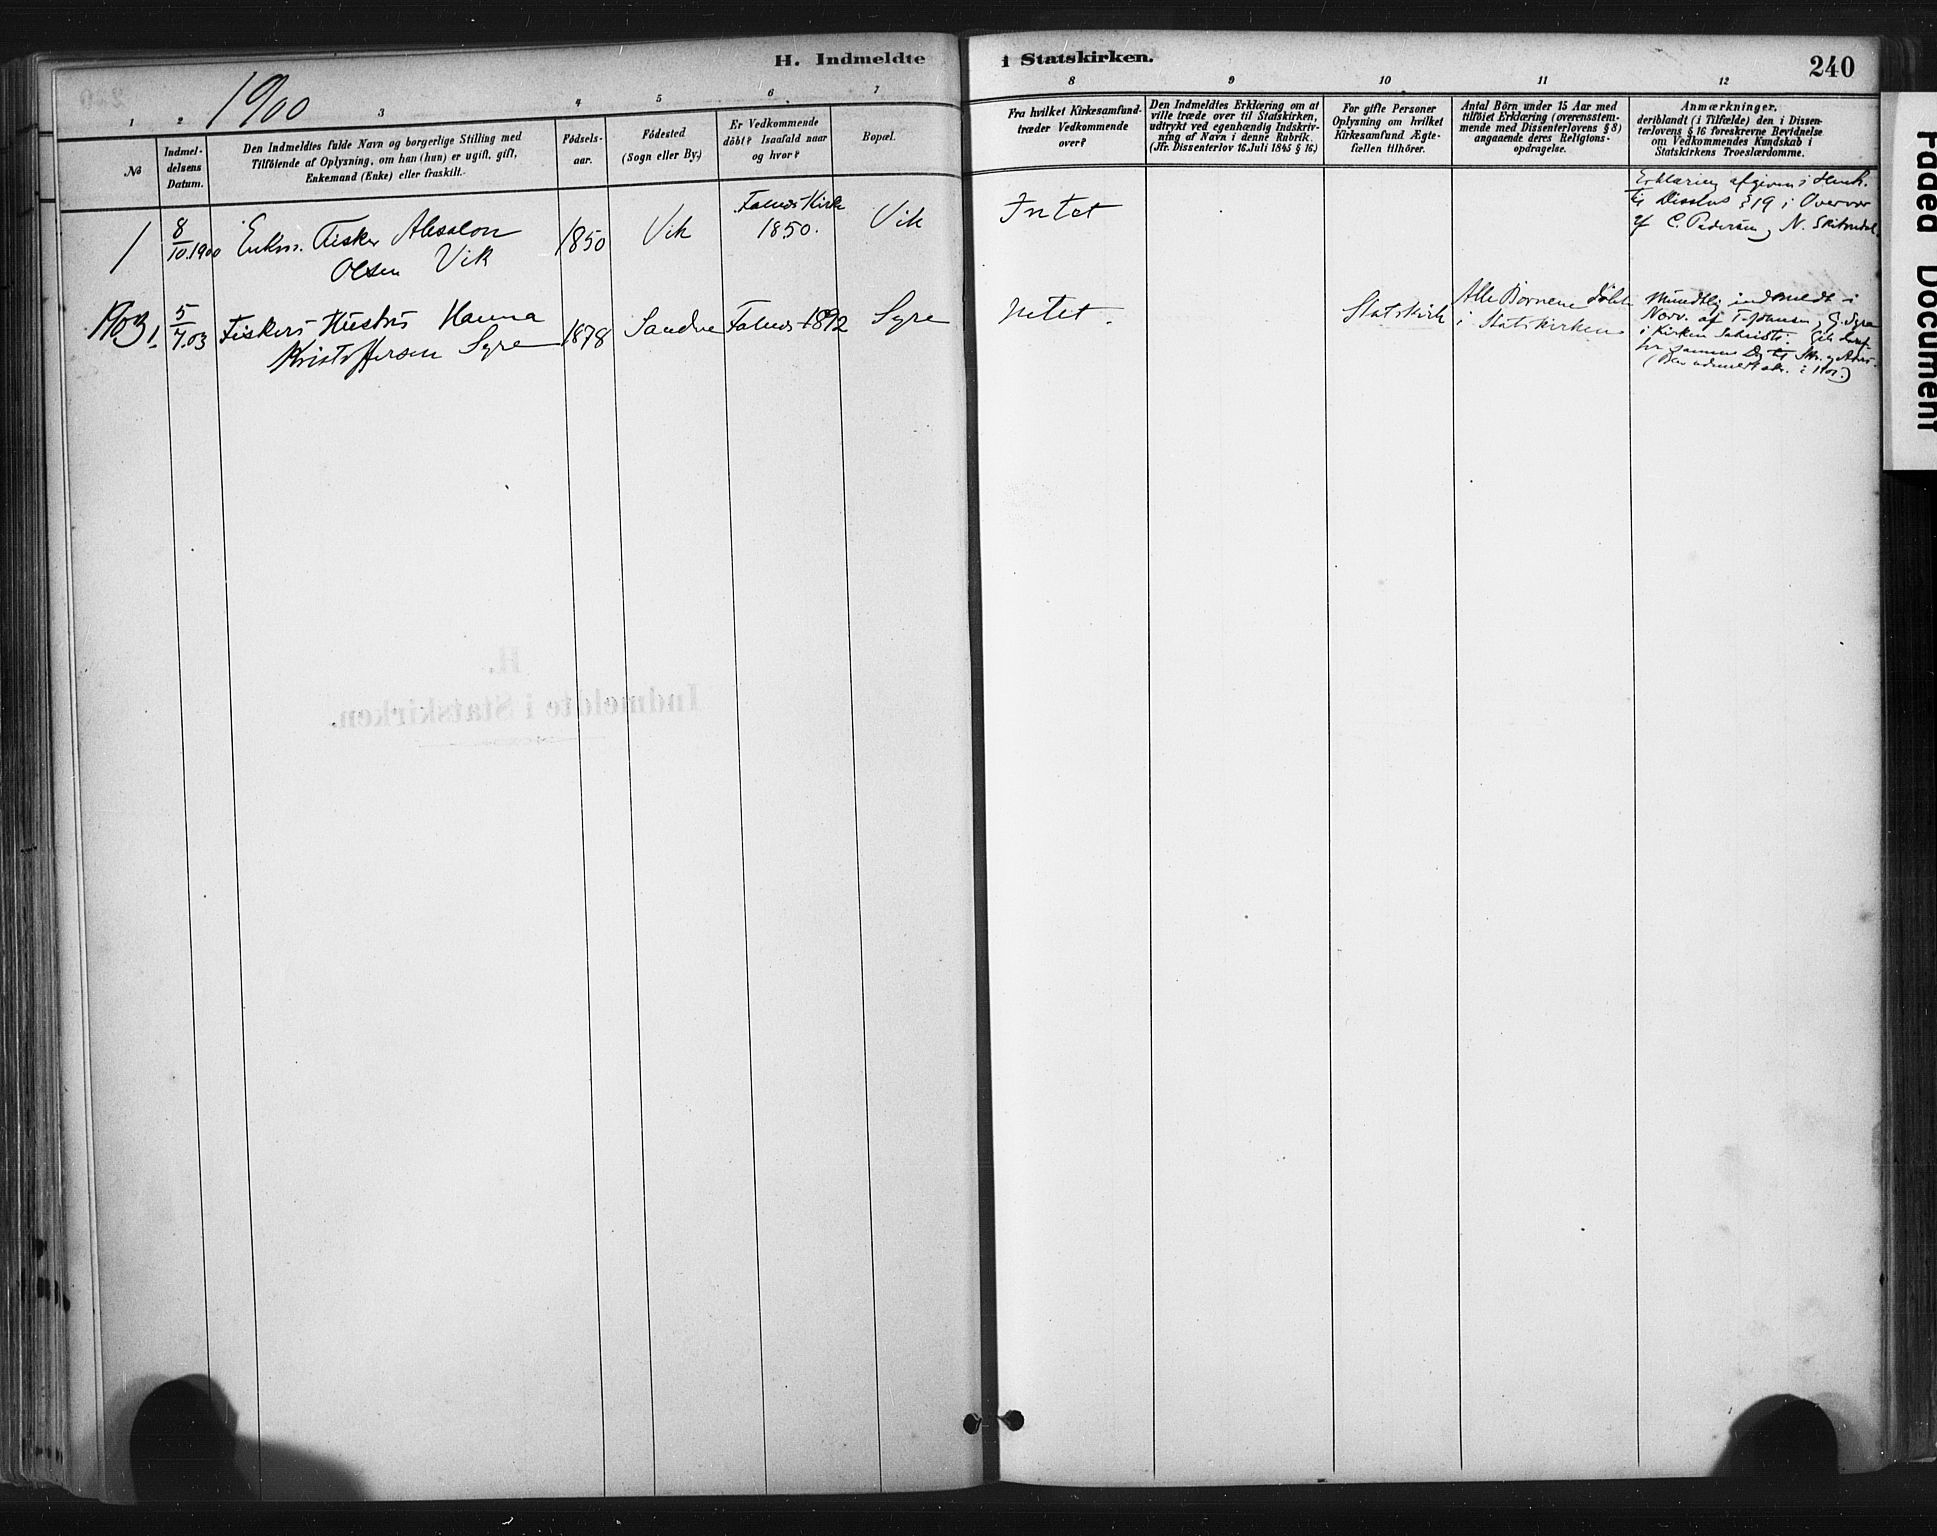 H. Indmeldte i Statskirken.
240
1900
1 2 3 4 5 6 7 8 9 10 11 12
№
Indmel-
delsens
Datum.
Den Indmeldtes fulde Navn og borgerlige Stilling med
Tilföiende af Oplysning, om han (hun) er ugift, gift,
Enkemand (Enke) eller fraskilt.
Födsels-
aar.
Födested
(Sogn eller By.)
Er Vedkommende
döbt? Isaafald naar
og hvor?
Bopæl.
Fra hvilket Kirkesamfund-
træder Vedkommende
over?
Den Indmeldtes Erklæring om at
ville træde over til Statskirken,
udtrykt ved egenhændig Indskriv-
ning af Navn i denne Rubrik.
(Jfr. Dissenterlov 16. Juli 1845 § 16.)
For gifte Personer
Oplysning om hvilket
Kirkesamfund Ægte-
fællen tilhörer.
Antal Börn under 15 Aar med
tilföiet Erklæring (overensstem-
mende med Dissenterlovens § 8)
angaaende deres Religions-
opdragelse.
Anmærkninger,
deriblandt (i Tilfælde) den i Dissen-
terlovens § 16 foreskrevne Bevidnelse
om Vedkommendes Kundskab i
Statskirkens Troeslærdomme.
1
8/10.1900
Enkm. Fisker Absalon
Olsen Vik
1850
Vik
Falnes Kirke
1850.
Vik
Intet
Erklæring afgiven i Henh.
til Disslovs § 19 i Overvær
af C. Pedersen
1903
1.
5/7.03
Fiskers Hustru Hanna
Kristoffersen Syre
1878
Sandve
Falnes 1892
Syre
Intet.
Statskirk
Alle Börnene döbt
i Statskirken
Mundtlig indmeldt i
Nærv. af T. Johnsen, G. Syre
i Kirkens Sakristi.
H.
Indmeldte i Statskirken.
Faded Document